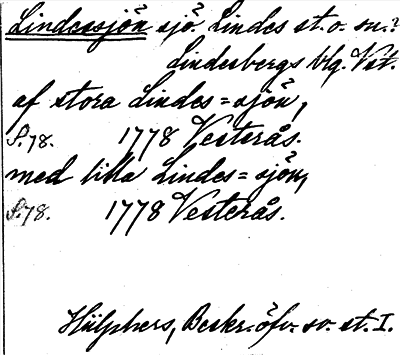 Lindessjön sjö. Lindes st. o. sn.?
Lindesbergs blg. Vst.
af stora Lindes=sjön,
S. 78. 1778 Vesterås.
med lilla Lindes=sjön,
S. 78. 1778 Vesterås.
Hülphers, Beskr. öfv. sv. st. I.